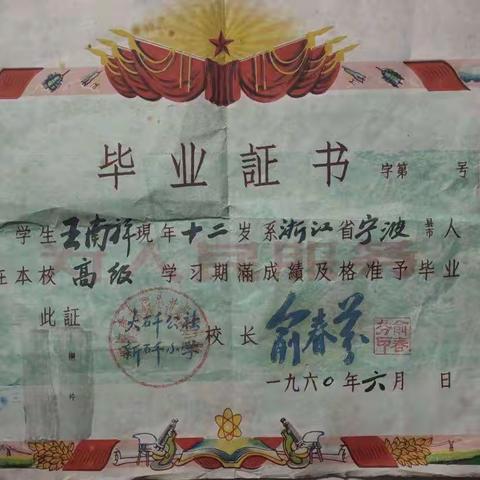 毕业証书
字第 号
学生王南祥現年十二岁系浙江省宁波县市人
在本校高级学习期滿成績及格准予毕业
此証
大碶公社
新碶小学
校长 俞春芬
一九六〇年六月 日